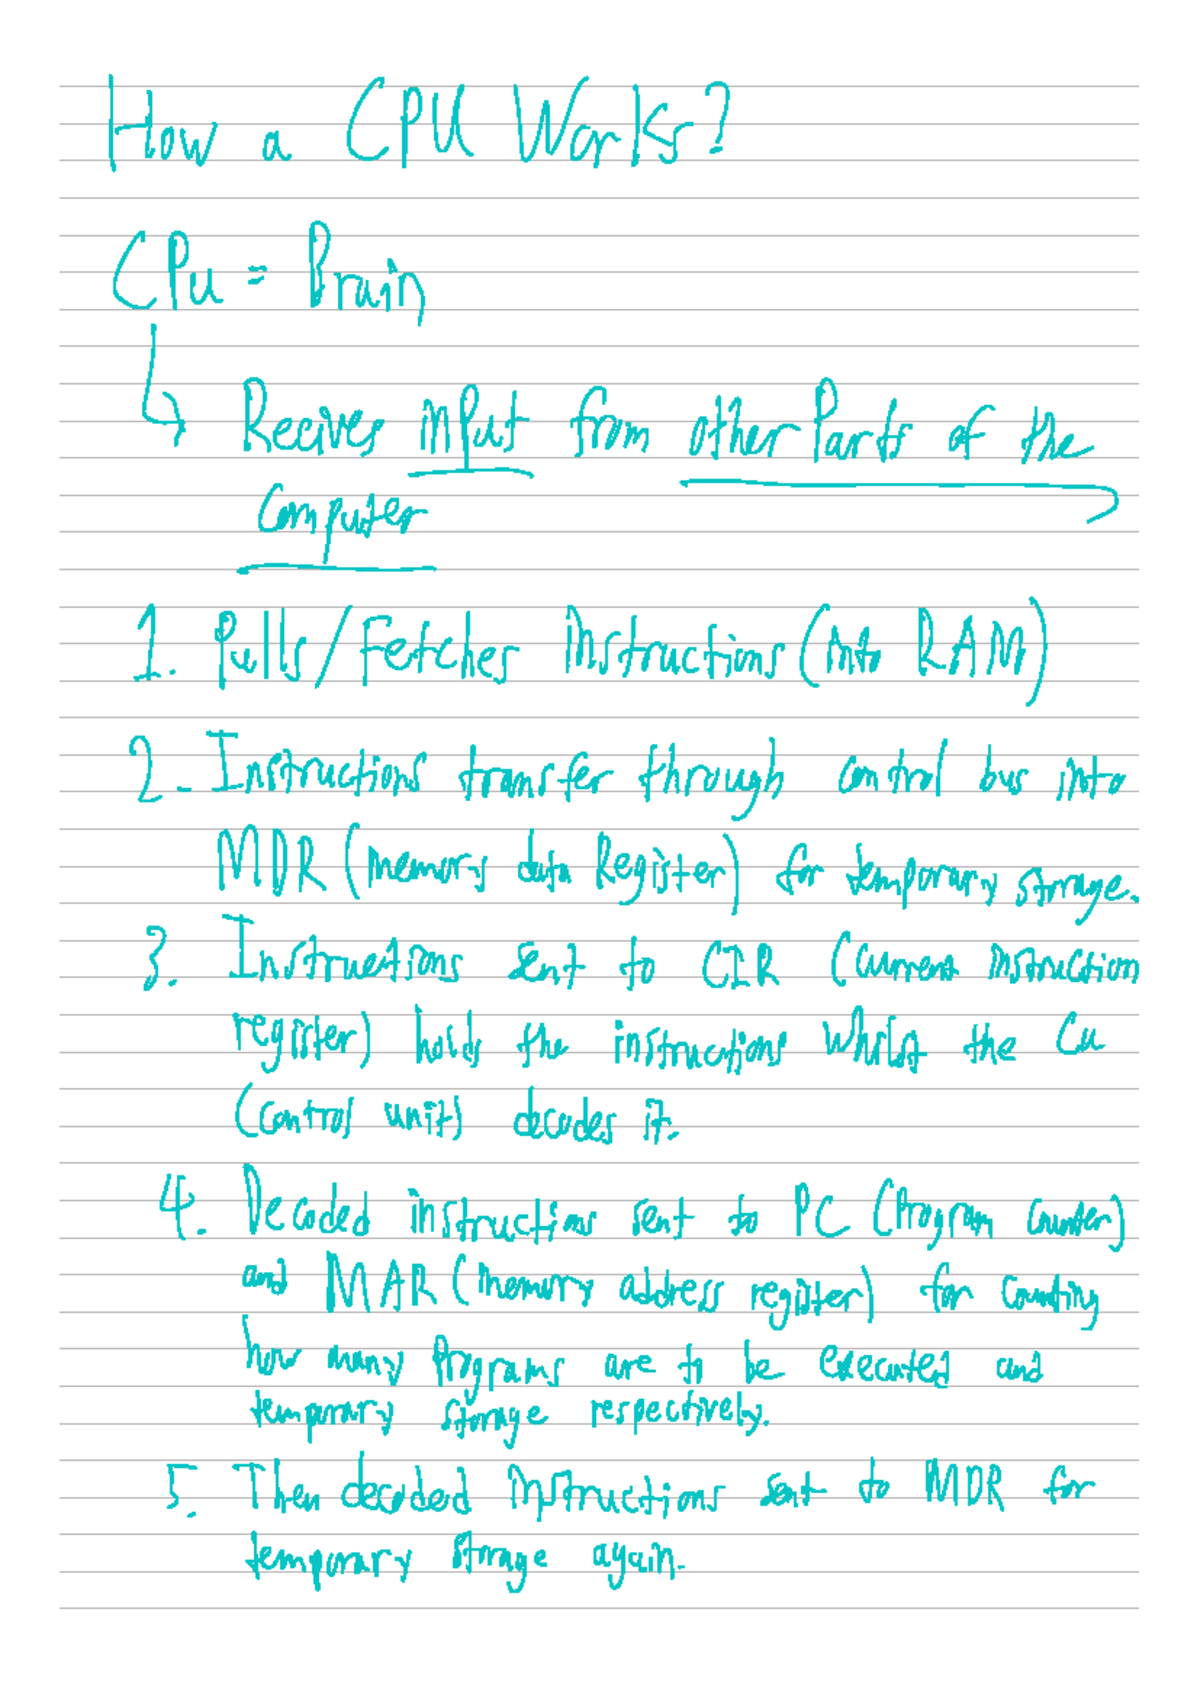 How a CPU Works?
CPU = Brain
↳ Recives input from other Parts of the
Computer
1. Pulls/Fetches instructions (into RAM)
2. Instructions transfer through control bus into
MDR (memory data Register) for temporary storage.
3. Instructions sent to CIR (current instruction
register) holds the instructions whilst the CU
(control unit) decodes it.
4. Decoded instructions sent to PC (Program Counter)
and MAR (memory address register) for counting
how many Programs are to be executed and
temporary storage respectively.
5. Then decoded instructions sent to MDR for
temporary storage again.